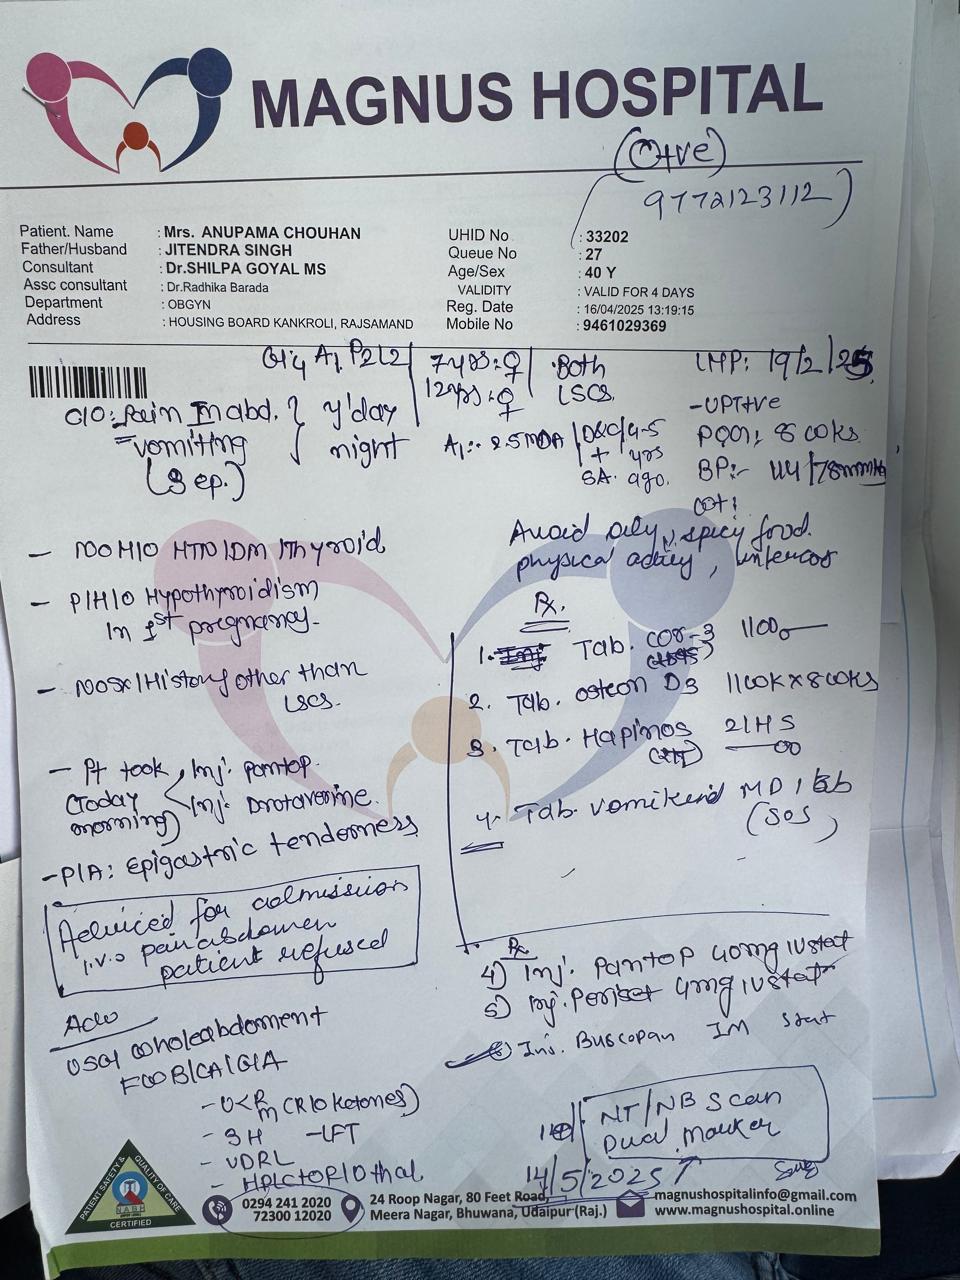 MAGNUS HOSPITAL
9772123112
Patient. Name : Mrs. ANUPAMA CHOUHAN
Father/Husband : JITENDRA SINGH
Consultant : Dr.SHILPA GOYAL MS
Assc consultant : Dr.Radhika Barada
Department : OBGYN
Address : HOUSING BOARD KANKROLI, RAJSAMAND
UHID No : 33202
Queue No : 27
Age/Sex : 40 Y
VALIDITY : VALID FOR 4 DAYS
Reg. Date : 16/04/2025 13:19:15
Mobile No : 9461029369
G4 A1 P2L2
7yrs: ♀
12yrs: ♀
Both
LSCS
LMP: 19/2/25
- UPT+ve
POG: 8 wks
BP:-
C/O: Pain in abd.
vomiting
(3 ep.)
y'day
night
A1:- 2.5 MOA
D&C/4-5
yrs
SA. ago.
Avoid oily, spicy food.
physical
- No H/O HTN/DM/Thyroid
- P/H/O Hypothyroidism
In 1st pregnancy.
- No Sx/History other than
LSCS.
- Pt took
(Today
morning)
Inj. Pantop.
Inj. Drotaverine.
- P/A: Epigastric tenderness
Adviced for admission
i.v.o pain abdomen
patient refused
Rx.
1. Tab.
2. Tab. osteon D3
3. Tab. Hapinos
4. Tab. Vomikind MD 1 tab
(SOS)
Rx
4) Inj. Pantop 40mg IV stat
5) Inj. Periset 4mg IV stat
6) Inj. Buscopan IM stat
Adv
USG whole abdomen
- U<R/M (R/O ketones)
- LFT
- VDRL
- HPLC to R/O thal
NT/NB Scan
Dual Marker
14/5/2025
PATIENT SAFETY & QUALITY OF CARE
NABH
CERTIFIED
0294 241 2020
72300 12020
24 Roop Nagar, 80 Feet Road,
Meera Nagar, Bhuwana, Udaipur (Raj.)
magnushospitalinfo@gmail.com
www.magnushospital.online